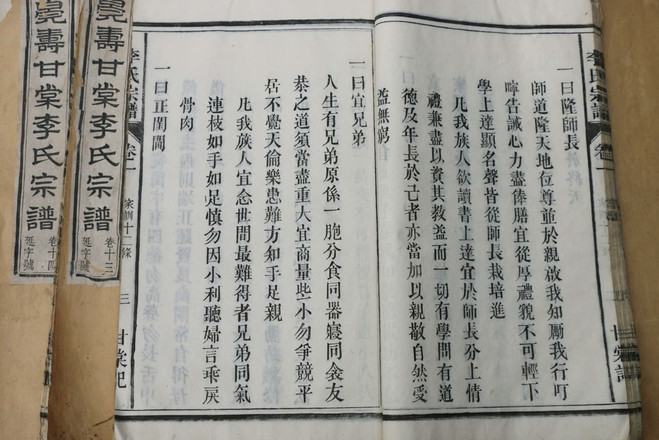 一曰隆師長
師道隆天地位尊並於親啟我知勵我行叮
嚀告誡心力盡俸膳宜從厚禮貌不可輕下
學上達顯名聲皆從師長栽培進
凡我族人欲讀書上達宜於師長分上情
禮兼盡以資其教益而一切有學問有道
德及年長於己者亦當加以親敬自然受
益無窮
一曰宜兄弟
人生有兄弟原係一胞分食同器寢同衾友
恭之道須當盡重大宜商量些小勿爭競平
居不覺天倫樂患難方知手足親
凡我族人宜念世間最難得者兄弟同氣
連枝如手如足慎勿因小利聽婦言乖戾
骨肉
一曰正閨閫
李氏宗譜 卷一 家訓十二條 三 甘棠記
壽甘棠李氏宗譜
卷十三
延字號
壽甘棠李氏宗譜
卷十四
延字號